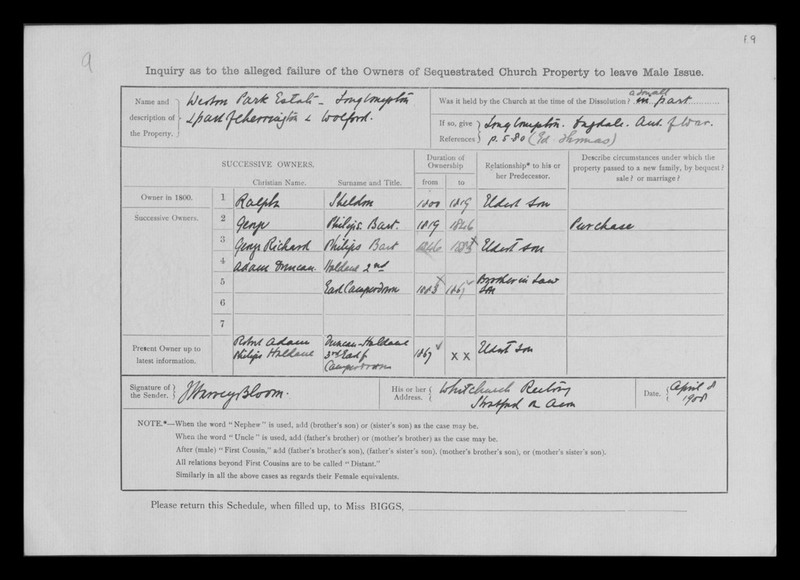 9
19
Inquiry as to the alleged failure of the Owners of Sequestrated Church Property to leave Male Issue.
Name and description of the Property.
Weston Park Estate - Long Compton
& part of Cherrington & Wolford.
Was it held by the Church at the time of the Dissolution? a small
in part
If so, give References
Long Compton. Dugdale. Ant. of War.
p. 580 (Ed Thomas)
SUCCESSIVE OWNERS.
Christian Name. Surname and Title.
Duration of Ownership
from to
Relationship* to his or her Predecessor.
Describe circumstances under which the property passed to a new family, by bequest? sale? or marriage?
Owner in 1800. 1 Ralph Sheldon 1800 1819 Eldest Son
Successive Owners. 2 George Philips. Bart. 1819 1846 Purchase
3 George Richard Philips Bart 1846 Eldest son
4 Adam Duncan Haldane 2nd
5 Earl Camperdown 1867 Brother in Law
6
7
Present Owner up to latest information.
Robert Adam Duncan-Haldane
Philips Haldane 3rd Earl of
Camperdown
1867 x x Eldest Son
Signature of the Sender. J Harvey Bloom.
His or her Address. Whitchurch Rectory
Stratford on Avon
Date. April 8
1908
NOTE.*—When the word "Nephew" is used, add (brother's son) or (sister's son) as the case may be.
When the word "Uncle" is used, add (father's brother) or (mother's brother) as the case may be.
After (male) "First Cousin," add (father's brother's son), (father's sister's son), (mother's brother's son), or (mother's sister's son).
All relations beyond First Cousins are to be called "Distant."
Similarly in all the above cases as regards their Female equivalents.
Please return this Schedule, when filled up, to Miss BIGGS,